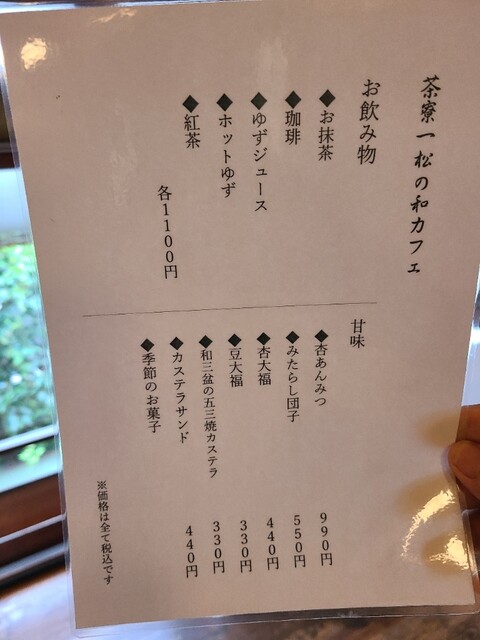 茶寮一松の和カフェ
お飲み物
◆お抹茶
◆珈琲
◆ゆずジュース
◆ホットゆず
◆紅茶
各1100円
甘味
◆杏あんみつ 990円
◆みたらし団子 550円
◆杏大福 440円
◆豆大福 330円
◆和三盆の五三焼カステラ 330円
◆カステラサンド 440円
◆季節のお菓子
※価格は全て税込です